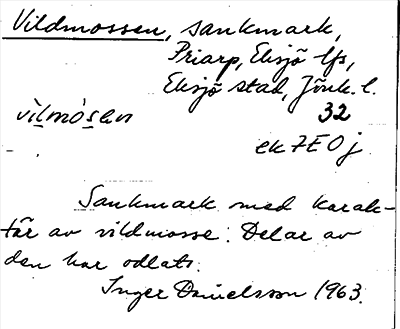 Vildmossen, sankmark,
Priarp, Eksjö lfs,
Eksjö stad, Jönk. l.
vilmósen 32
ek 7E0j
Sankmark med karak-
tär av vildmosse. Delar av
den har odlats.
Inger Danielsson 1963.